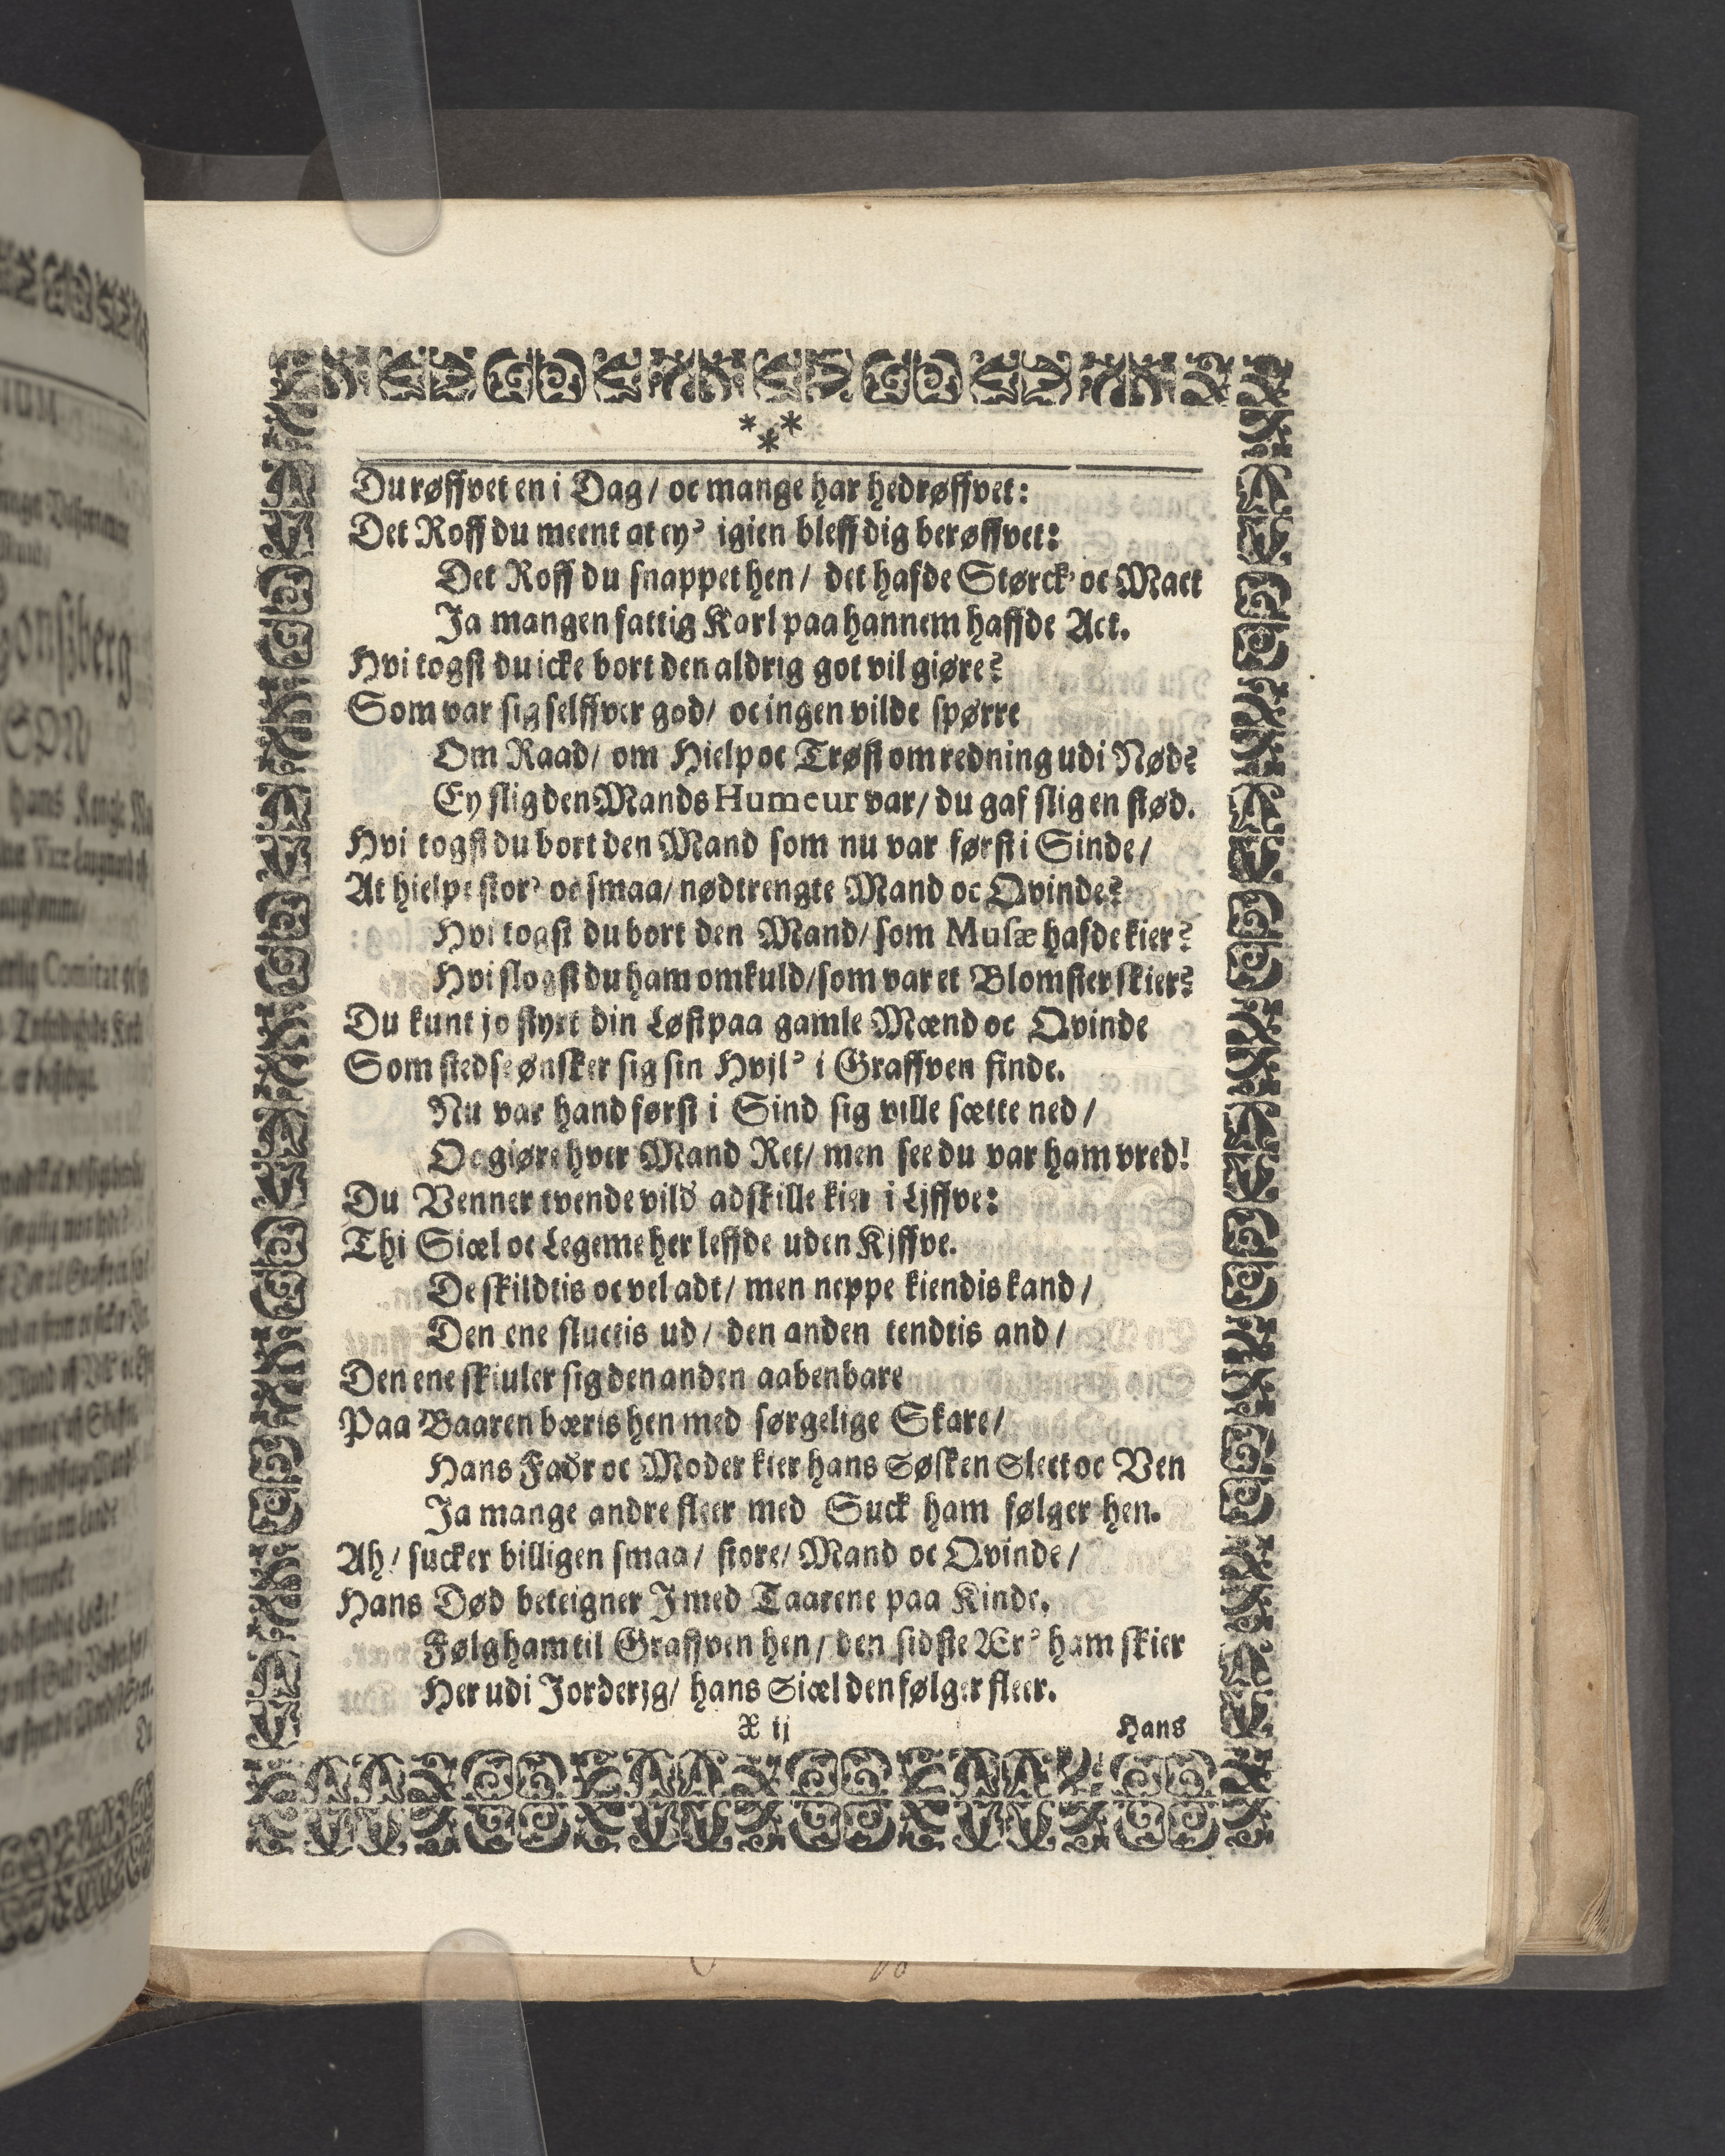 * * *
Du røffvet en i Dag / oc mange har hedrøffvet:
Det Roff du meent at ey' igien bleff dig berøffvet:
Det Roff du snappet hen / det hafde Størck' oc Mact
Ja mangen fattig Karl paa hannem haffde Act.
Hvi togst du icke bort den aldrig got vil giøre?
Som var sig selffver god / oc ingen vilde spørre
Om Raad / om Hielp oc Trøst om redning udi Nød?
Ey slig den Mands Humeur var / du gaf slig en stød.
Hvi togst du bort den Mand som nu var først i Sinde /
At hielpe stor' oc smaa / nødtrengte Mand oc Qvinde?
Hvi togst du bort den Mand / som Musæ hafde kier?
Hvi slogst du ham omkuld / som var et Blomster skier?
Du kunt jo styrt din Løst paa gamle Mænd oc Qvinde
Som stedse ønsker sig sin Hvjl' i Graffven finde.
Nu var hand først i Sind sig ville sætte ned /
Oc giøre hver Mand Ret / men see du var ham vred!
Du Venner tvende vild' adskille kier i Ljffve:
Thi Siæl oc Legeme her leffde uden Kjffve.
De skildtis oc vel adt / men neppe kiendis kand /
Den ene sluctis ud / den anden tendtis and /
Den ene skiuler sig den anden aabenbare
Paa Baaren bæris hen med sørgelige Skare /
Hans Fadr oc Moder kier hans Søsken Slect oc Ven
Ja mange andre fleer med Suck ham følger hen.
Ah / sucker billigen smaa / store / Mand oc Qvinde /
Hans Død beteigner J med Taarene paa Kinde,
Følg ham til Graffven hen / den sidste Ær' ham skier
Her udi Jorderjg / hans Siæl den følger fleer.
X ij
Hans